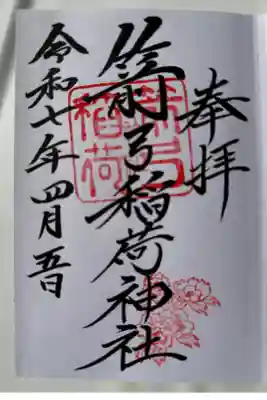 奉拝
箭弓稲荷神社
箭弓
稲荷
令和七年四月五日